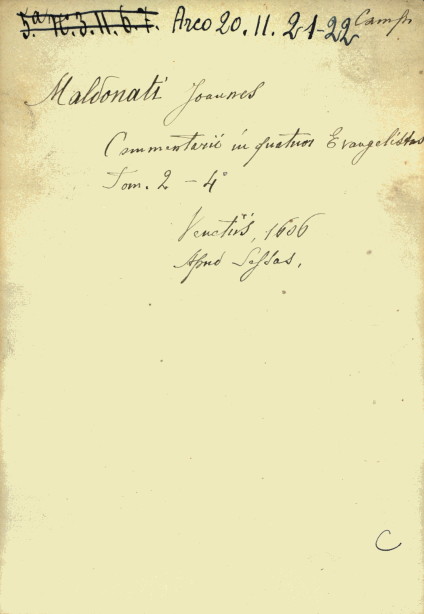 5.a N. 3. 11. 6. 7. Arco 20. 11. 21-22 Camp.
Maldonati Joannes
Commentarii in quatuor Evangelistas
Tom. 2 - 4°
Venetiis, 1606
Apud Sessas,
C